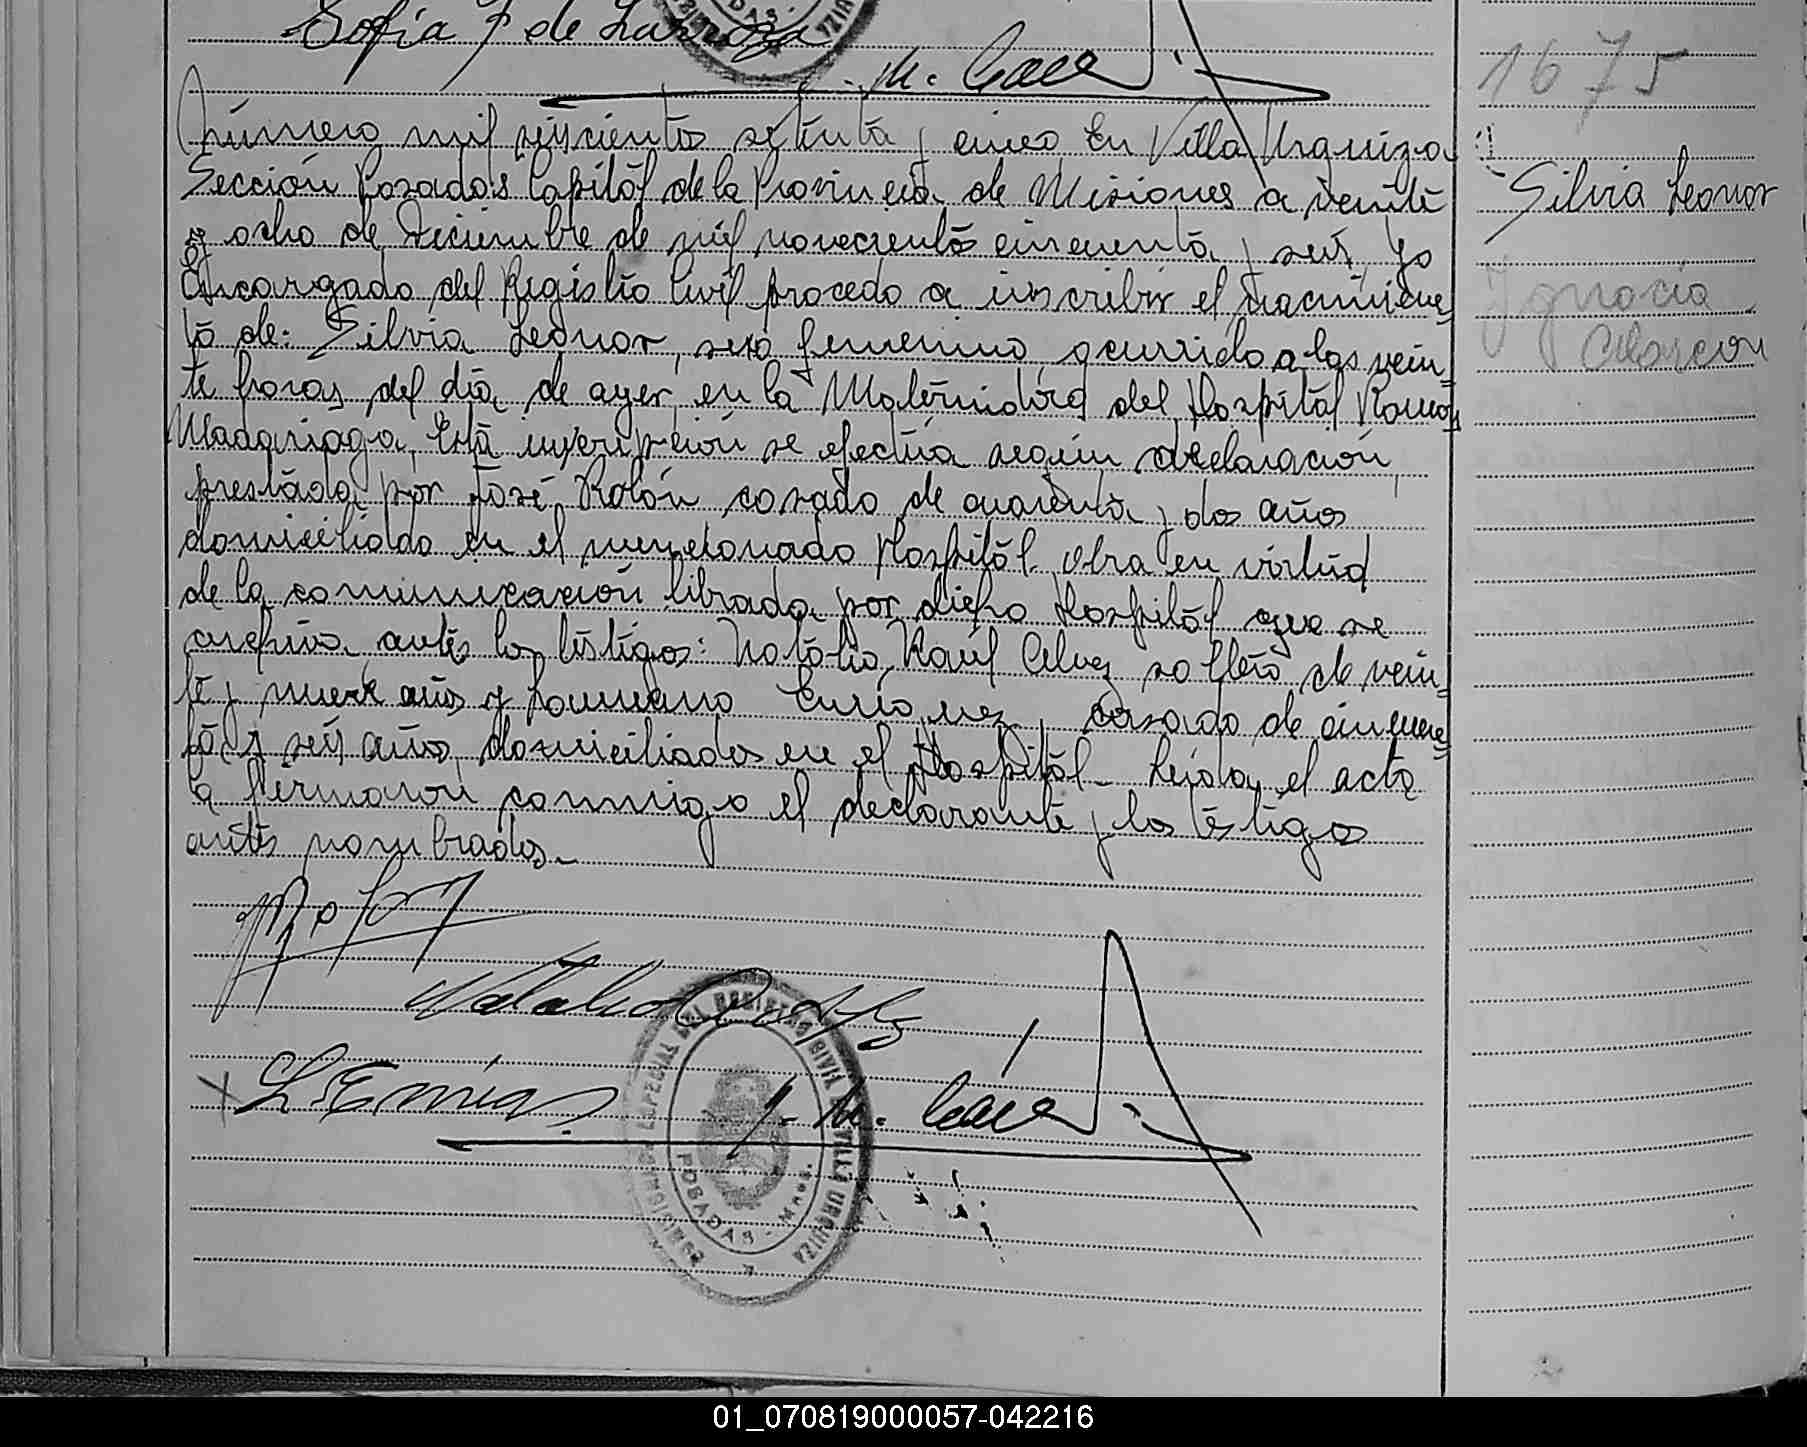 Sofía F. de Larroza
J. M. Cáce
1675
Número mil seiscientos setenta y cinco, En Villa Urquiza
Sección Posadas Capital de la Provincia de Misiones a veinte
y ocho de Diciembre de mil novecientos cincuenta y seis, yo
el
Encargado del Registro Civil procedo a inscribir el nacimien=
to de: Silvia Leonor, sexo femenino, ocurrido a las vein=
te horas del día de ayer, en la Maternidad del Hospital Ramón
Madariaga, Esta inscripción se efectúa según declaración
prestada por José Rolón casado de cuarenta y dos años
domiciliado en el mencionado Hospital. Obra en virtud
de la comunicación librada por dicho Hospital que se
archiva antes los testigos: Natalio Raúl Alvez soltero de vein=
te y nueve años y casado de cincuen=
ta y seis años, domiciliados en el Hospital- Leída el acta
la firmaron conmigo el declarante y los testigos
antes nombrados.-
Silvia Leonor
Ignacia
Alarcon
Natalio R. Alvez
J. M. Cáce
POSADAS - Mnes.
REGISTRO CIVIL VILLA URQUIZA
01_070819000057-042216